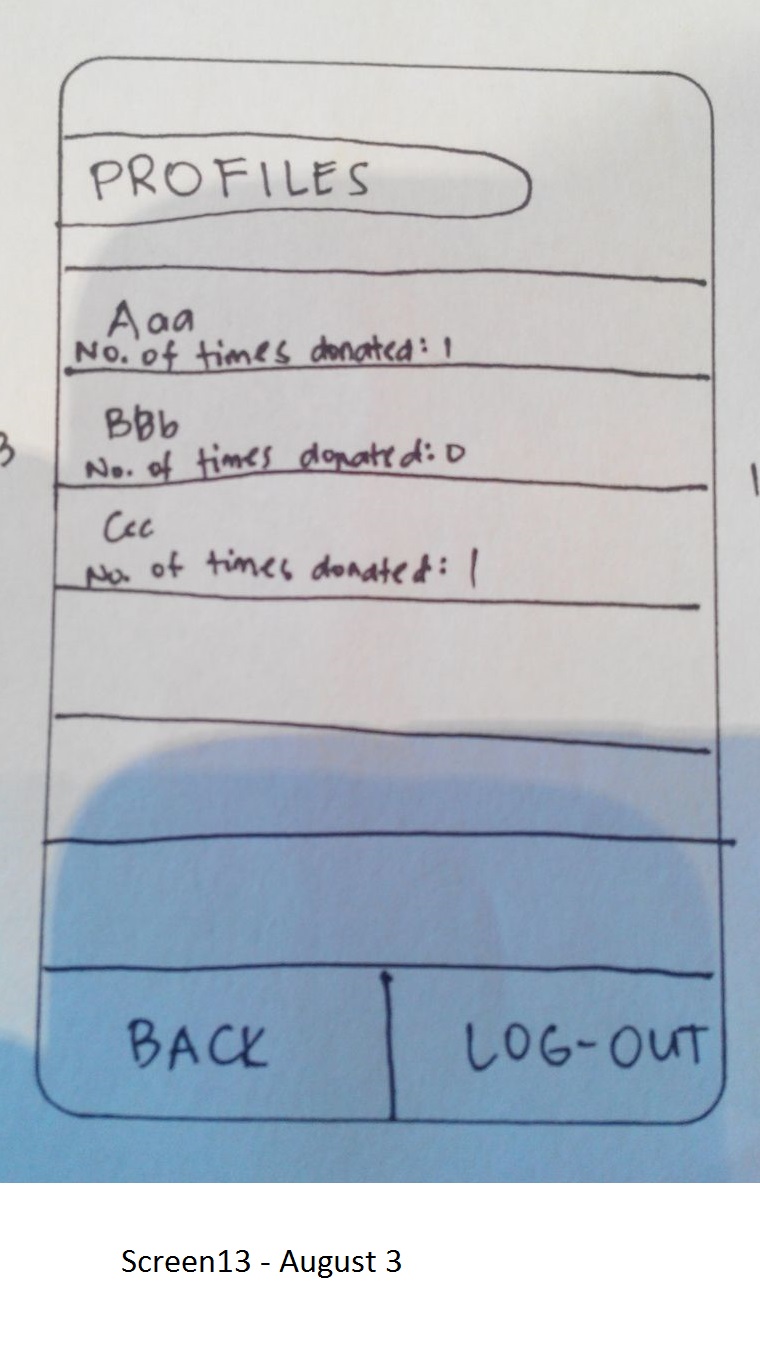 PROFILES
Aaa
No. of times donated: 1
BBb
No. of times donated: 0
Ccc
No. of times donated: 1
BACK
LOG-OUT
Screen13 - August 3